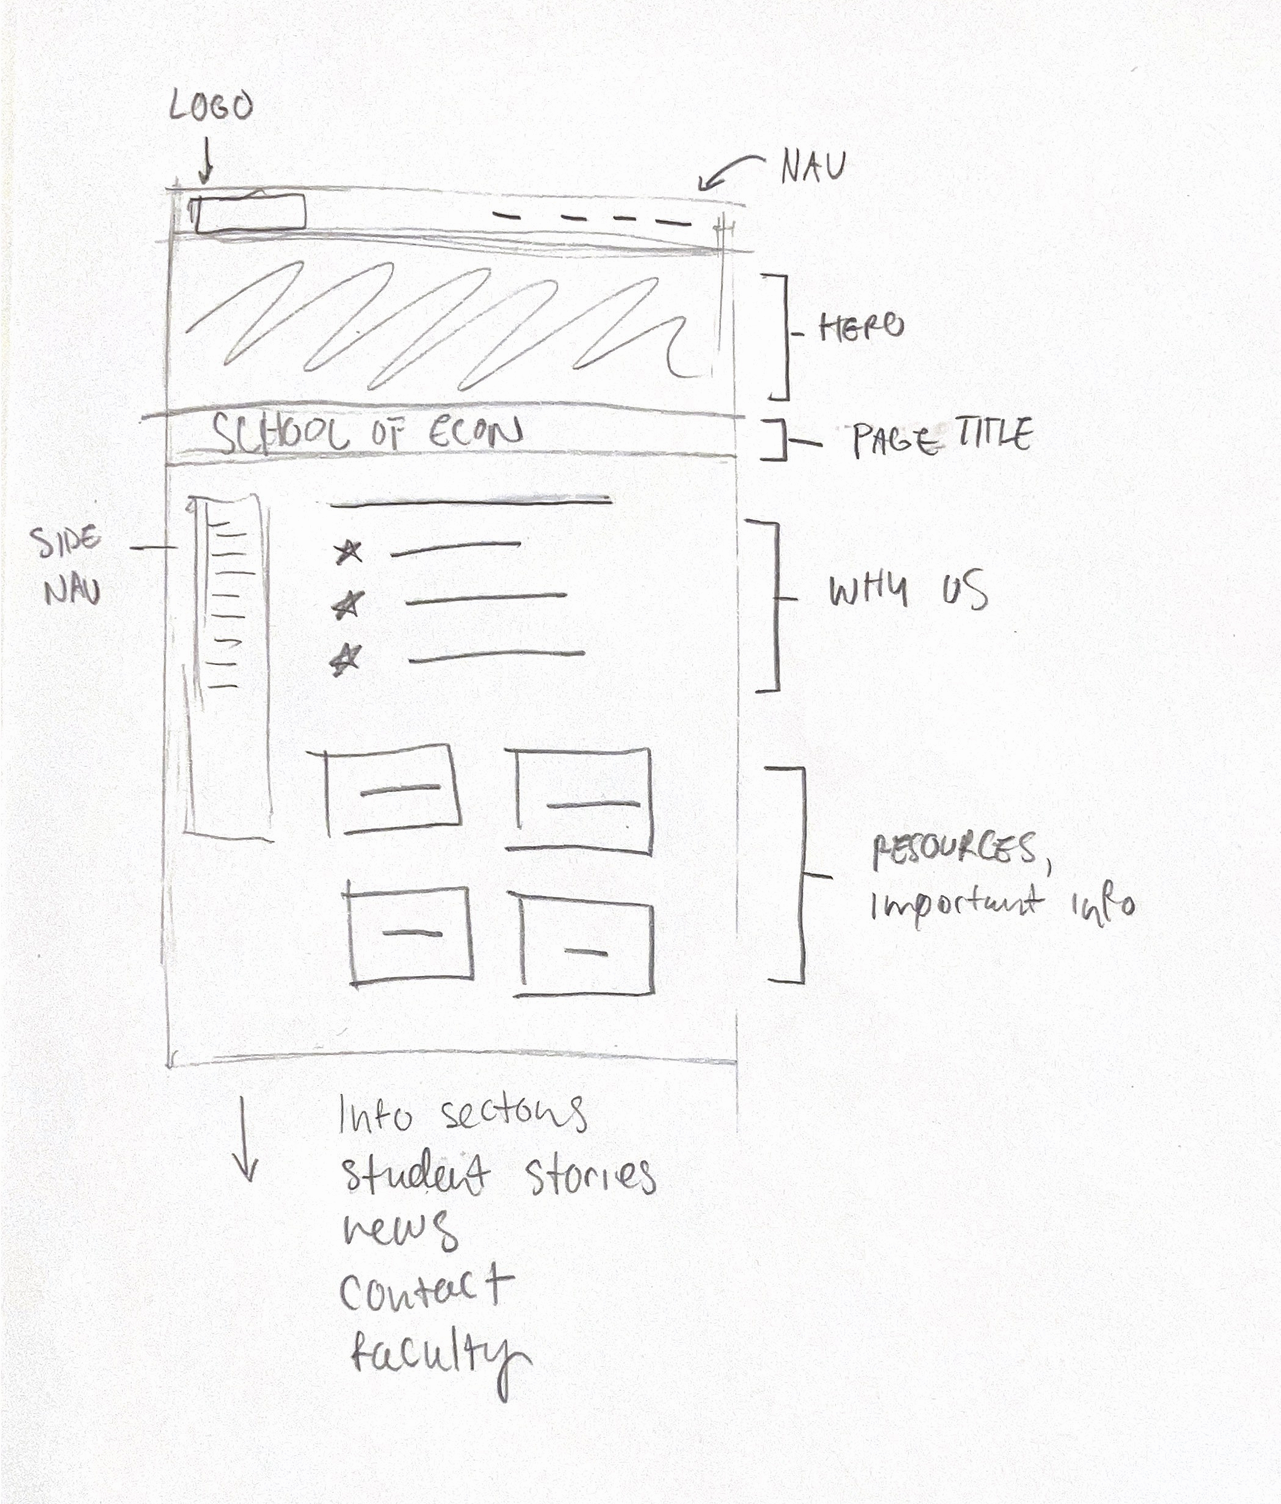 LOGO
NAV
HERO
SCHOOL OF ECON
PAGE TITLE
SIDE
NAV
WHY US
RESOURCES,
important info
Info sections
student stories
news
contact
faculty